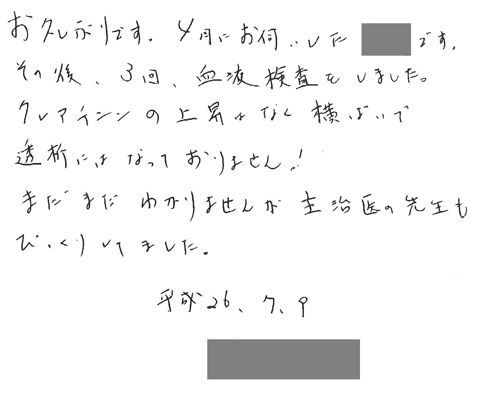 お久しぶりです。4月にお伺いした です。
その後、3回、血液検査をしました。
クレアチニンの上昇はなく横ばいで
透析にはなっておりません!
まだまだわかりませんが主治医の先生も
びっくりしてました。
平成26、7、9